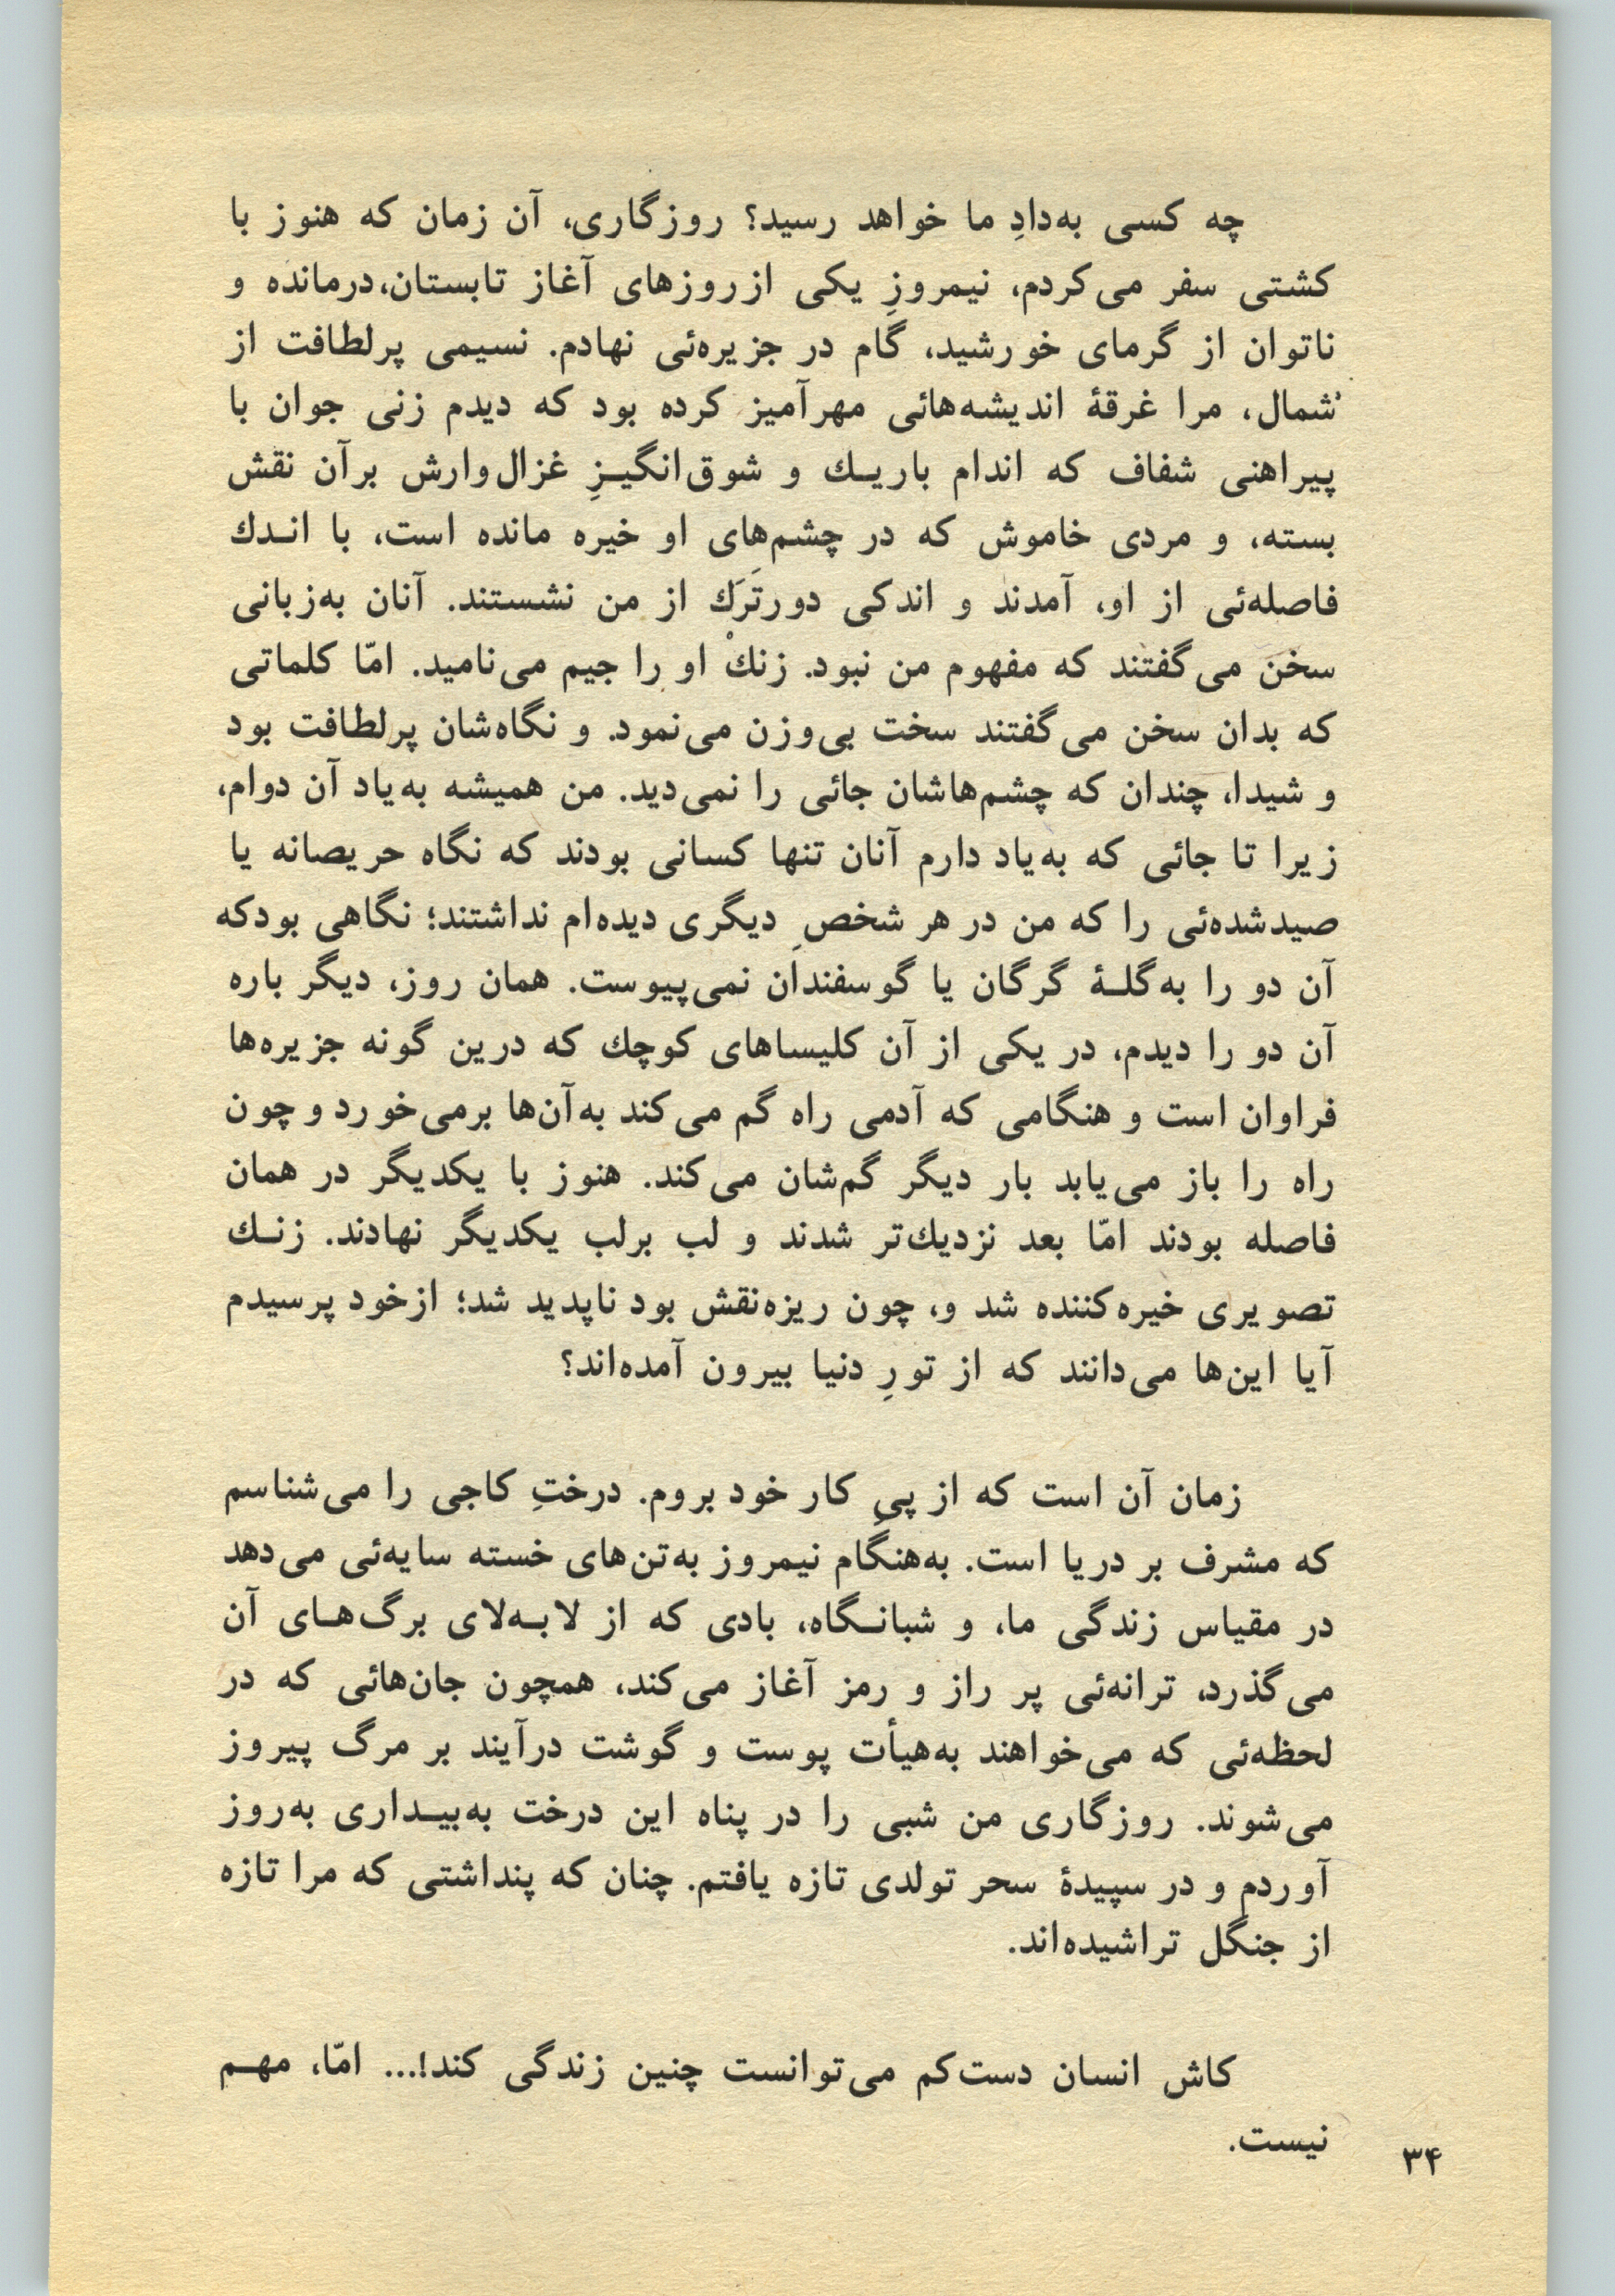 چه کسی به‌دادِ ما خواهد رسید؟ روزگاری، آن زمان که هنوز با
کشتی سفر می‌کردم، نیمروزِ یکی ازروزهای آغاز تابستان،درمانده و
ناتوان از گرمای خورشید، گام در جزیره‌ئی نهادم. نسیمی پرلطافت از
شمال، مرا غرقهٔ اندیشه‌هائی مهرآمیز کرده بود که دیدم زنی جوان با
پیراهنی شفاف که اندام باریـك و شوق‌انگیـزِ غزال‌وارش برآن نقش
بسته، و مردی خاموش که در چشم‌های او خیره مانده است، با انـدك
فاصله‌ئی از او، آمدند و اندکی دورتَرَك از من نشستند. آنان به‌زبانی
سخن می‌گفتند که مفهوم من نبود. زنكْ او را جیم می‌نامید. امّا کلماتی
که بدان سخن می‌گفتند سخت بی‌وزن می‌نمود. و نگاه‌شان پرلطافت بود
و شیدا، چندان که چشم‌هاشان جائی را نمی‌دید. من همیشه به‌یاد آن دوام،
زیرا تا جائی که به‌یاد دارم آنان تنها کسانی بودند که نگاه حریصانه یا
صیدشده‌ئی را که من در هر شخصِ دیگری دیده‌ام نداشتند؛ نگاهی بودکه
آن دو را به‌گلـهٔ گرگان یا گوسفندان نمی‌پیوست. همان روز، دیگر باره
آن دو را دیدم، در یکی از آن کلیساهای کوچك که درین گونه جزیره‌ها
فراوان است و هنگامی که آدمی راه گم می‌کند به‌آن‌ها برمی‌خورد و چون
راه را باز می‌یابد بار دیگر گم‌شان می‌کند. هنوز با یکدیگر در همان
فاصله بودند امّا بعد نزدیك‌تر شدند و لب برلب یکدیگر نهادند. زنـك
تصویری خیره‌کننده شد و، چون ریزه‌نقش بود ناپدید شد؛ ازخود پرسیدم
آیا این‌ها می‌دانند که از تورِ دنیا بیرون آمده‌اند؟
زمان آن است که از پیِ کار خود بروم. درختِ کاجی را می‌شناسم
که مشرف بر دریا است. به‌هنگام نیمروز به‌تن‌های خسته سایه‌ئی می‌دهد
در مقیاس زندگی ما، و شبانـگاه، بادی که از لابـه‌لای برگ‌هـای آن
می‌گذرد، ترانه‌ئی پر راز و رمز آغاز می‌کند، همچون جان‌هائی که در
لحظه‌ئی که می‌خواهند به‌هیأت پوست و گوشت درآیند بر مرگ پیروز
می‌شوند. روزگاری من شبی را در پناه این درخت به‌بیـداری به‌روز
آوردم و در سپیدهٔ سحر تولدی تازه یافتم. چنان که پنداشتی که مرا تازه
از جنگل تراشیده‌اند.
کاش انسان دست‌کم می‌توانست چنین زندگی کند!... امّا، مهـم
نیست.
۳۴